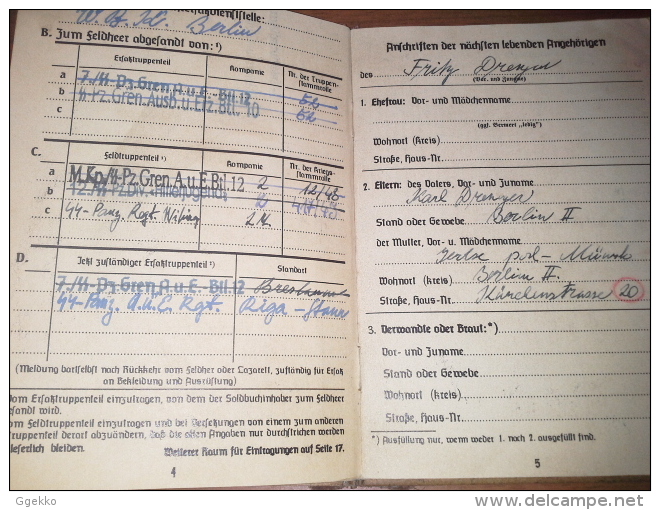 W. B. K. Berlin
B. Zum Feldheer abgesandt von:¹)
Ersatztruppenteil Kompanie Nr. der Truppen-
stammrolle
a 7./SS-Pz.Gren.A.u.E.-Btl.12
b SS-Pz.Gren.Ausb.u.Ers.Btl. 10
c
C. Feldtruppenteil ²) Kompanie Nr. der Kriegs-
stammrolle
a M.Kp./SS-Pz.Gren.A.u.E.Btl.12 2 12/48
b
c SS-Panz. Regt
D. Jetzt zuständiger Ersatztruppenteil ²) Standort
7./SS-Pz.Gren.A.u.E.-Btl.12
SS-Panz. A.u.E. Rgt. Riga
(Meldung dortselbst nach Rückkehr vom Feldheer oder Lazarett, zuständig für Ersatz
an Bekleidung und Ausrüstung)
Vom Ersatztruppenteil einzutragen, von dem der Soldbuchinhaber zum Feldheer
gesandt wird.
Vom Feldtruppenteil einzutragen und bei Versetzungen von einem zum anderen
truppenteil derart abzuändern, daß die alten Angaben nur durchstrichen werden
leserlich bleiben. Weiterer Raum für Eintragungen auf Seite 17.
4
Anschriften der nächsten lebenden Angehörigen
des Fritz Drenger
(Vor- und Zuname)
1. Ehefrau: Vor- und Mädchenname
(ggf. Vermerk „ledig“)
Wohnort (Kreis)
Straße, Haus-Nr.
2. Eltern: des Vaters, Vor- und Zuname
Karl Drenger
Stand oder Gewerbe Berlin II
der Mutter, Vor- u. Mädchenname
Wohnort (Kreis) Berlin II
Straße, Haus-Nr. 20
3. Verwandte oder Braut:*)
Vor- und Zuname
Stand oder Gewerbe
Wohnort (Kreis)
Straße, Haus-Nr.
*) Ausfüllung nur, wenn weder 1. noch 2. ausgefüllt sind.
5
Ggekko
delcampe.net